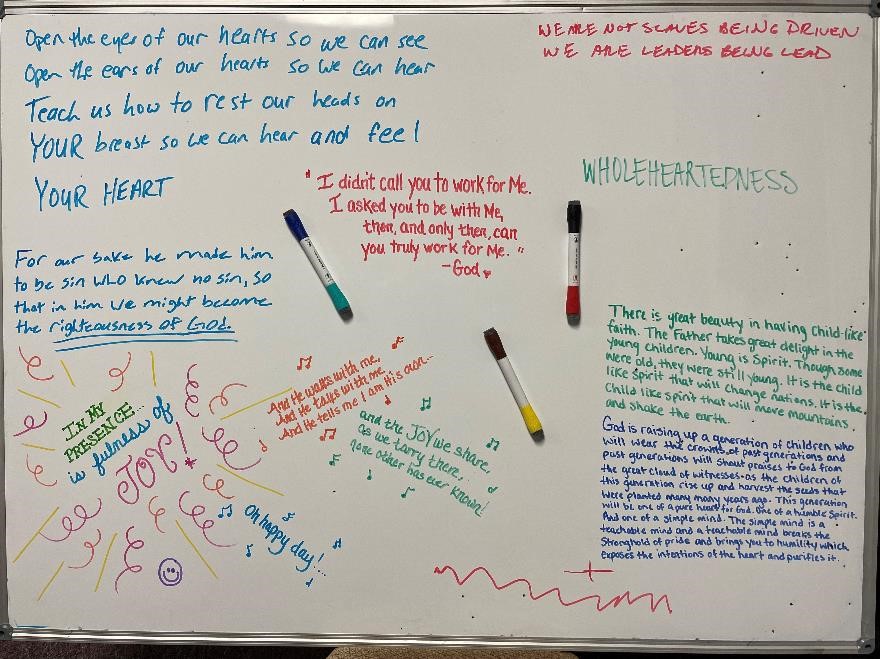 Open the eyes of our hearts so we can see
Open the ears of our hearts so we can hear
Teach us how to rest our heads on
YOUR breast so we can hear and feel
YOUR HEART
WE ARE NOT SLAVES BEING DRIVEN
WE ARE LEADERS BEING LEAD
WHOLEHEARTEDNESS
"I didn't call you to work for Me.
I asked you to be with Me,
then, and only then, can
you truly work for Me."
-God
For our sake he made him
to be sin who knew no sin, so
that in him we might become
the righteousness of God.
IN MY
PRESENCE...
is fulness of
JOY!
And He walks with me,
And He talks with me
And He tells me I am His own...
and the JOY we share,
as we tarry there,
none other has ever known!
Oh happy day!...
There is great beauty in having child-like
faith. The Father takes great delight in the
young children. Young is Spirit. Though some
were old, they were still young. It is the child
like Spirit that will change nations. It is the
Child like spirit that will move mountains
and shake the earth.
God is raising up a generation of children who
will wear the crowns of past generations and
past generations will shout praises to God from
the great cloud of witnesses as the children of
this generation rise up and harvest the seeds that
were planted many many years ago. This generation
will be one of a pure heart for God. One of a humble Spirit.
And one of a simple mind. The simple mind is a
teachable mind and a teachable mind breaks the
Stronghold of pride and brings you to humility which
exposes the intentions of the heart and purifies it.